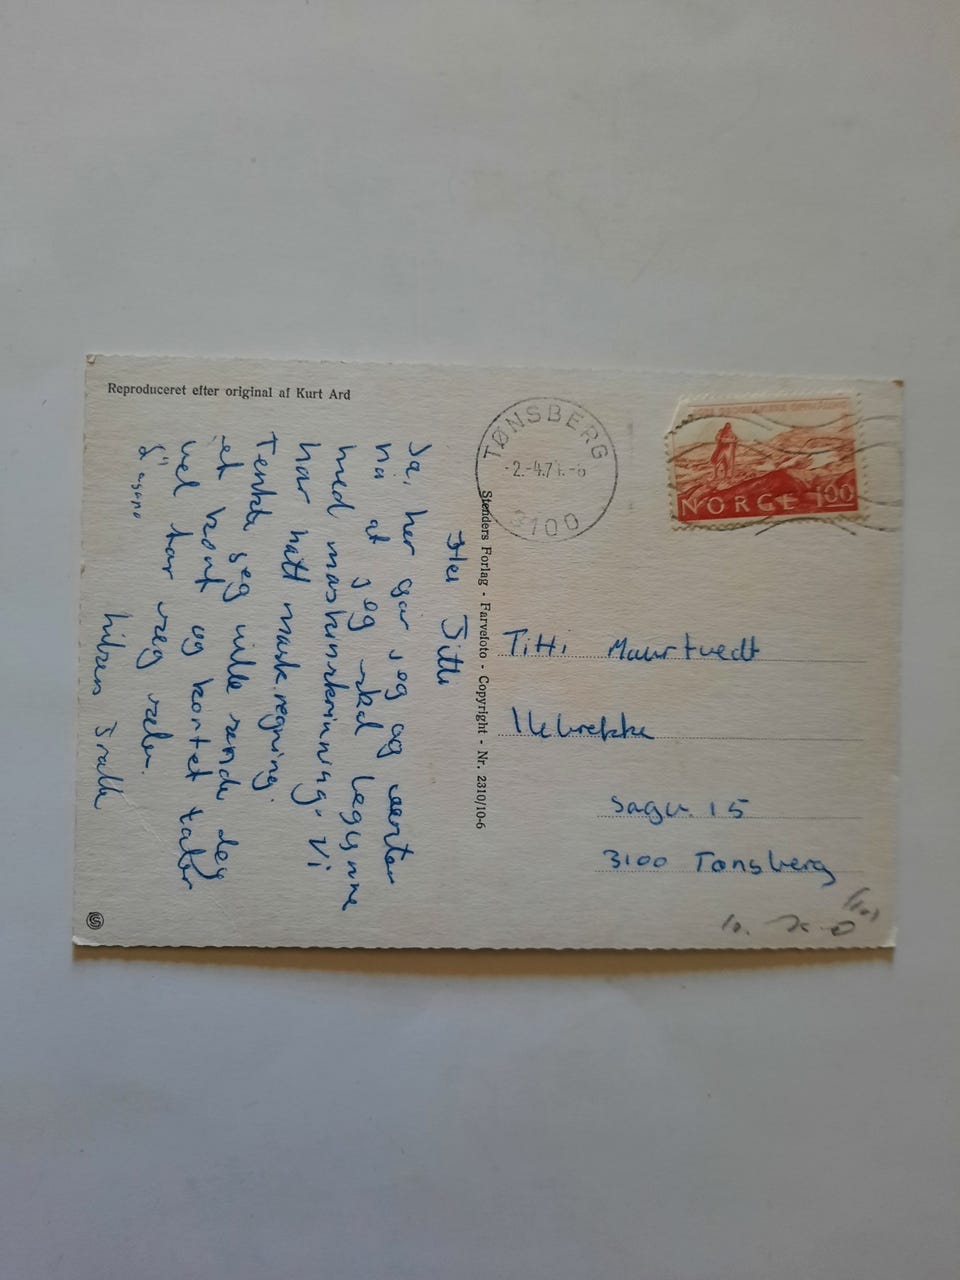 Reproduceret efter original af Kurt Ard
Hei Titti
Ja, her går jeg og venter
nå at jeg skal begynne
med maskinskriving. Vi
har hatt mask.regning.
Tenkte jeg ville sende deg
et kort og kortet taler
vel for seg selv.
hilsen
Stenders Forlag - Farvefoto - Copyright - Nr. 2310/10-6
TØNSBERG
-2.-4.74.-6
3100
NORGE 100
Titti Maurtvedt
Ilebrekke
Sagv. 15
3100 Tønsberg